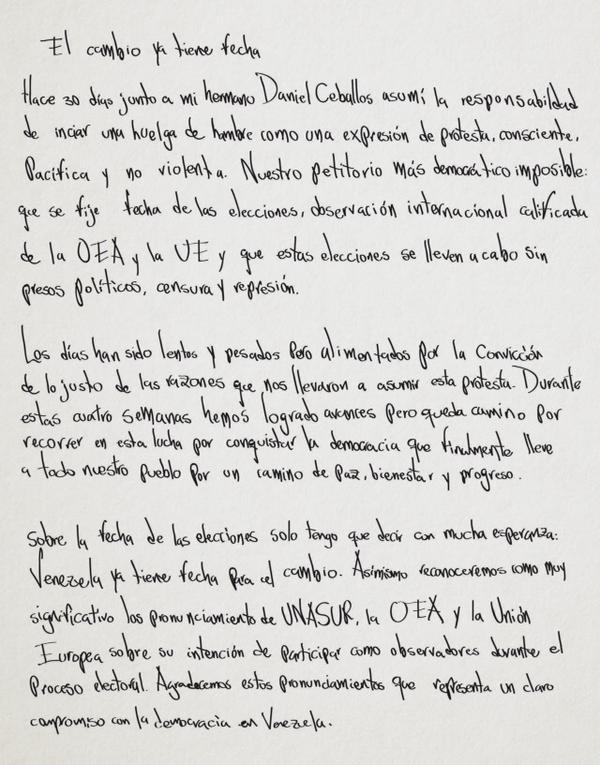 El cambio ya tiene fecha
Hace 30 días junto a mi hermano Daniel Ceballos asumí la responsabilidad
de inciar una huelga de hambre como una expresión de protesta, consciente,
Pacífica y no violenta. Nuestro petitorio más democrático imposible:
que se fije fecha de las elecciones, observación internacional calificada
de la OEA y la UE y que estas elecciones se lleven a cabo sin
presos políticos, censura y represión.
Los días han sido lentos y pesados pero alimentados por la Convicción
de lo justo de las razones que nos llevaron a asumir esta protesta. Durante
estas cuatro semanas hemos logrado avances pero queda camino por
recorrer en esta lucha por conquistar la democracia que finalmente lleve
a todo nuestro pueblo por un camino de Paz, bienestar y progreso.
Sobre la fecha de las elecciones solo tengo que decir con mucha esperanza:
Venezuela ya tiene fecha para el cambio. Asimismo reconoceremos como muy
significativo los pronunciamiento de UNASUR, la OEA y la Unión
Europea sobre su intención de participar como observadores durante el
Proceso electoral. Agradecemos estos pronunciamientos que representa un claro
compromiso con la democracia en Venezuela.